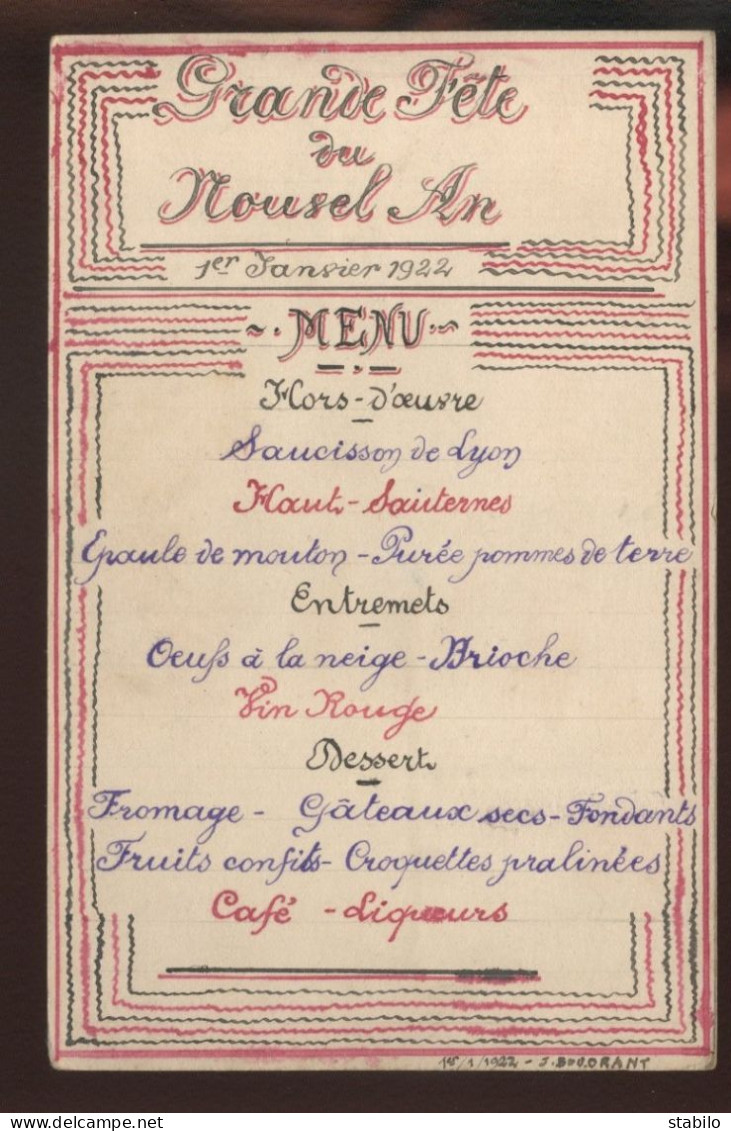 Grande Fête
du
Nouvel An
1er Janvier 1922
MENU
Hors-d'œuvre
Saucisson de Lyon
Haut-Sauternes
Epaule de mouton - Purée pommes de terre
Entremets
Oeufs à la neige - Brioche
Vin Rouge
Dessert
Fromage - Gâteaux secs - Fondants
Fruits confits - Croquettes pralinées
Café - Liqueurs
1er/1/1922 - J.
delcampe.net
stabilo